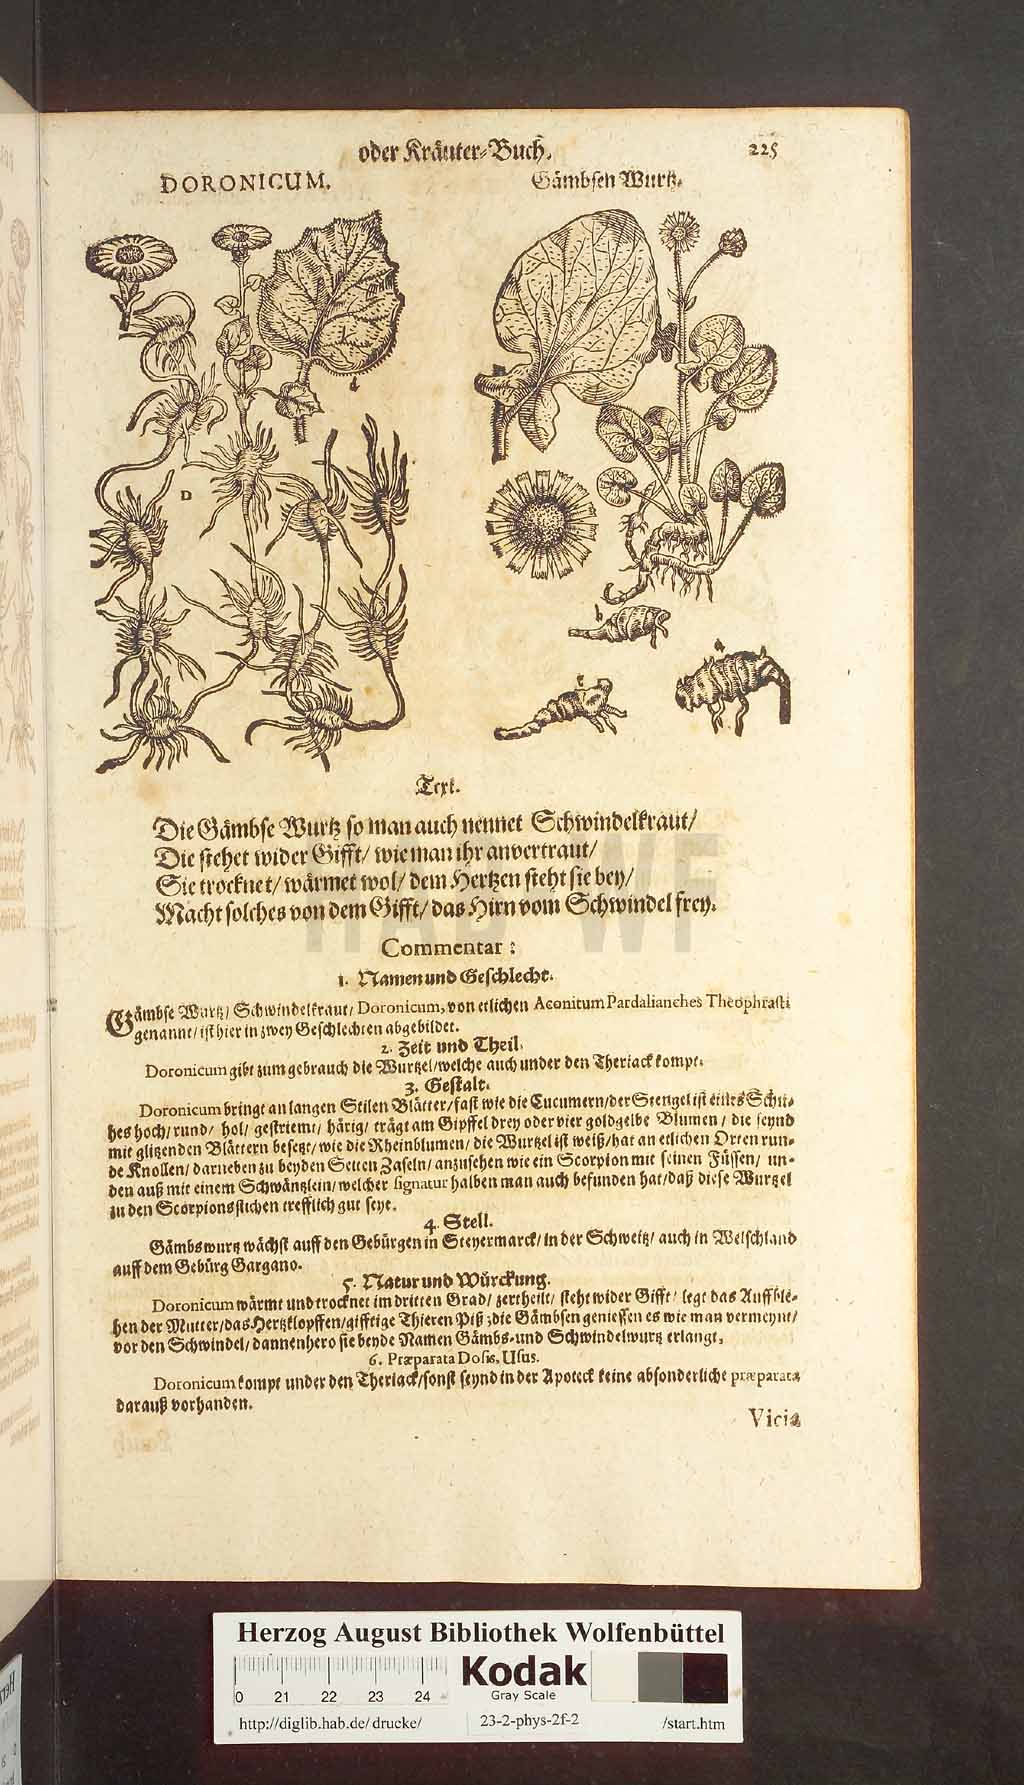 oder Kräuter-Buch. 225
DORONICUM. Gämbsen Wurtz.
d
D
b
a
c
Text.
Die Gämbse Wurtz so man auch nennet Schwindelkraut/
Die stehet wider Gifft/ wie man ihr anvertraut/
Sie trocknet/ wärmet wol/ dem Hertzen steht sie bey/
Macht solches von dem Gifft/ das Hirn vom Schwindel frey.
Commentar:
1. Namen und Geschlecht.
Gämbse Wurtz/ Schwindelkraut/ Doronicum, von etlichen Aconitum Pardalianches Theophrasti
genannt/ ist hier in zwey Geschlechten abgebildet.
2. Zeit und Theil.
Doronicum gibt zum gebrauch die Wurtzel/welche auch under den Theriack kompt.
3. Gestalt.
Doronicum bringt an langen Stilen Blätter/fast wie die Cucumern/der Stengel ist eines Schu-
hes hoch/ rund/ hol/ gestriemt/ härig/ trägt am Gipffel drey oder vier goldgelbe Blumen/ die seynd
mit glitzenden Blättern besetzt/ wie die Rheinblumen/ die Wurtzel ist weiß/hat an etlichen Orten run-
de Knollen/ darneben zu beyden Seiten Zaseln/ anzusehen wie ein Scorpion mit seinen Füssen/ un-
den auß mit einem Schwäntzlein/welcher signatur halben man auch befunden hat/daß diese Wurtzel
zu den Scorpionsstichen trefflich gut seye.
4. Stell.
Gämbswurtz wächst auff den Gebürgen in Steyermarck/ in der Schweitz/ auch in Welschland
auff dem Gebürg Gargano.
5. Natur und Würckung.
Doronicum wärmt und trocknet im dritten Grad/ zertheilt/ steht wider Gifft/ legt das Auffble-
hen der Mutter/das Hertzklopffen/gifftige Thieren Piß; die Gämbsen geniessen es wie man vermeynt/
vor den Schwindel/ dannenhero sie beyde Namen Gämbs- und Schwindelwurtz erlangt.
6. Præparata Dosis, Usus.
Doronicum kompt under den Theriack/sonst seynd in der Apoteck keine absonderliche præparata
darauß vorhanden.
Vicia
HAB WF
Herzog August Bibliothek Wolfenbüttel
0 21 22 23 24
Kodak
Gray Scale
http://diglib.hab.de/drucke/ 23-2-phys-2f-2 /start.htm